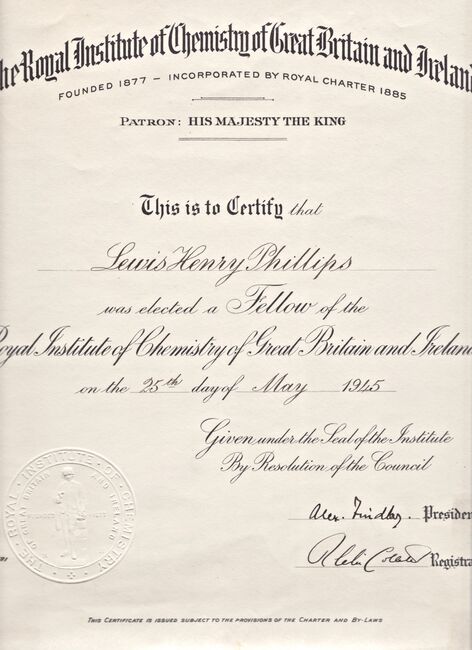 he Royal Institute of Chemistry of Great Britain and Irelan
FOUNDED 1877 – INCORPORATED BY ROYAL CHARTER 1885
PATRON: HIS MAJESTY THE KING
This is to Certify that
Lewis Henry Phillips
was elected a Fellow of the
Royal Institute of Chemistry of Great Britain and Irelan
on the 25th day of May 1945
Given under the Seal of the Institute
By Resolution of the Council
THE ROYAL INSTITUTE OF CHEMISTRY
OF GREAT BRITAIN AND IRELAND
Alex. Findlay. Presiden
Registra
THIS CERTIFICATE IS ISSUED SUBJECT TO THE PROVISIONS OF THE CHARTER AND BY-LAWS